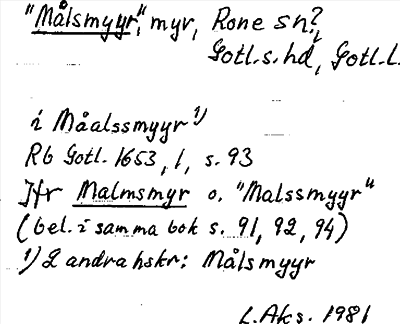 "Målsmyyr", myr, Rone sn?,
Gotl.s.hd, Gotl.l.
i Måalssmyyr 1)
Rb Gotl. 1653, 1, s. 93
Jfr Malmsmyr o. "Malssmyyr"
(bel. i samma bok s. 91, 92, 94)
1) 2 andra hskr: Målsmyyr
L.Aks. 1981